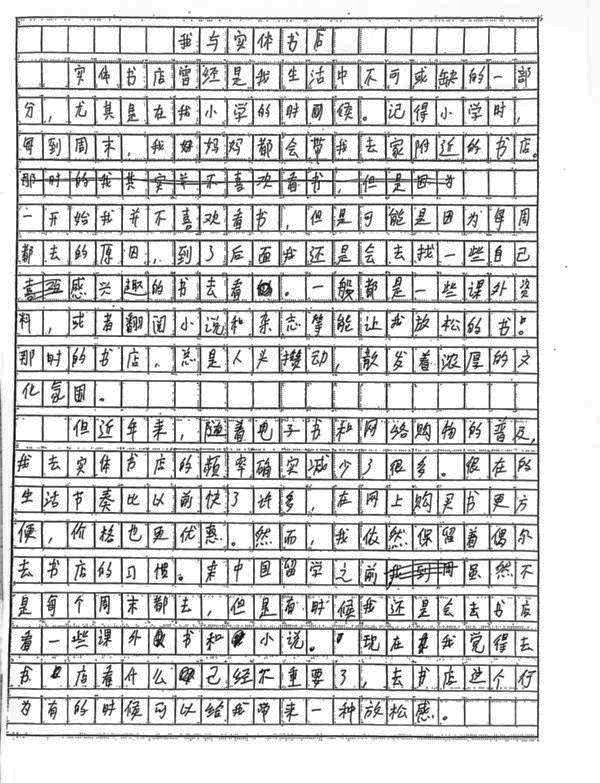 我与实体书店
实体书店曾经是我生活中不可或缺的一部
分，尤其是在我小学的时间候。记得小学时，
每到周末，我妈妈都会带我去家附近的书店。
那时的我其实并不喜欢看书，但是因为
一开始我并不喜欢看书，但是可能是因为每周
都去的原因，到了后面我还是会去找一些自己
喜欢感兴趣的书去看。一般都是一些课外资
料，或者翻阅小说和杂志等能让我放松的书。
那时的书店，总是人头攒动，散发着浓厚的文
化氛围。
但近年来，随着电子书和网络购物的普及，
我去实体书店的频率确实减少了很多。现在的
生活节奏比以前快了许多，在网上购买书更方
便，价格也更优惠。然而，我依然保留着偶尔
去书店的习惯。来中国留学之前我到周虽然不
是每个周末都去，但是有时候我还是会去书店
看一些课外书和小说。现在我觉得去
书店看什么已经不重要了，去书店这个行
为有的时候可以给我带来一种放松感。